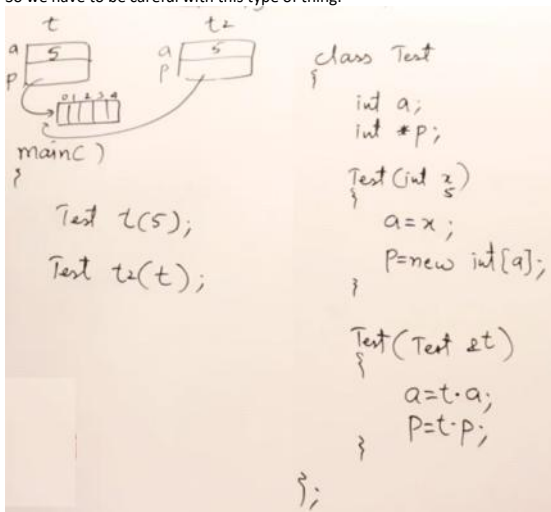 So we have to be careful with this type of thing.
t
t2
a 5
p
a 5
p
0 1 2 3 4
main()
{
Test t(5);
Test t2(t);
class Test
{
int a;
int *p;
Test(int x
5)
{
a=x;
P=new int[a];
}
Test(Test &t)
{
a=t.a;
P=t.p;
}
};